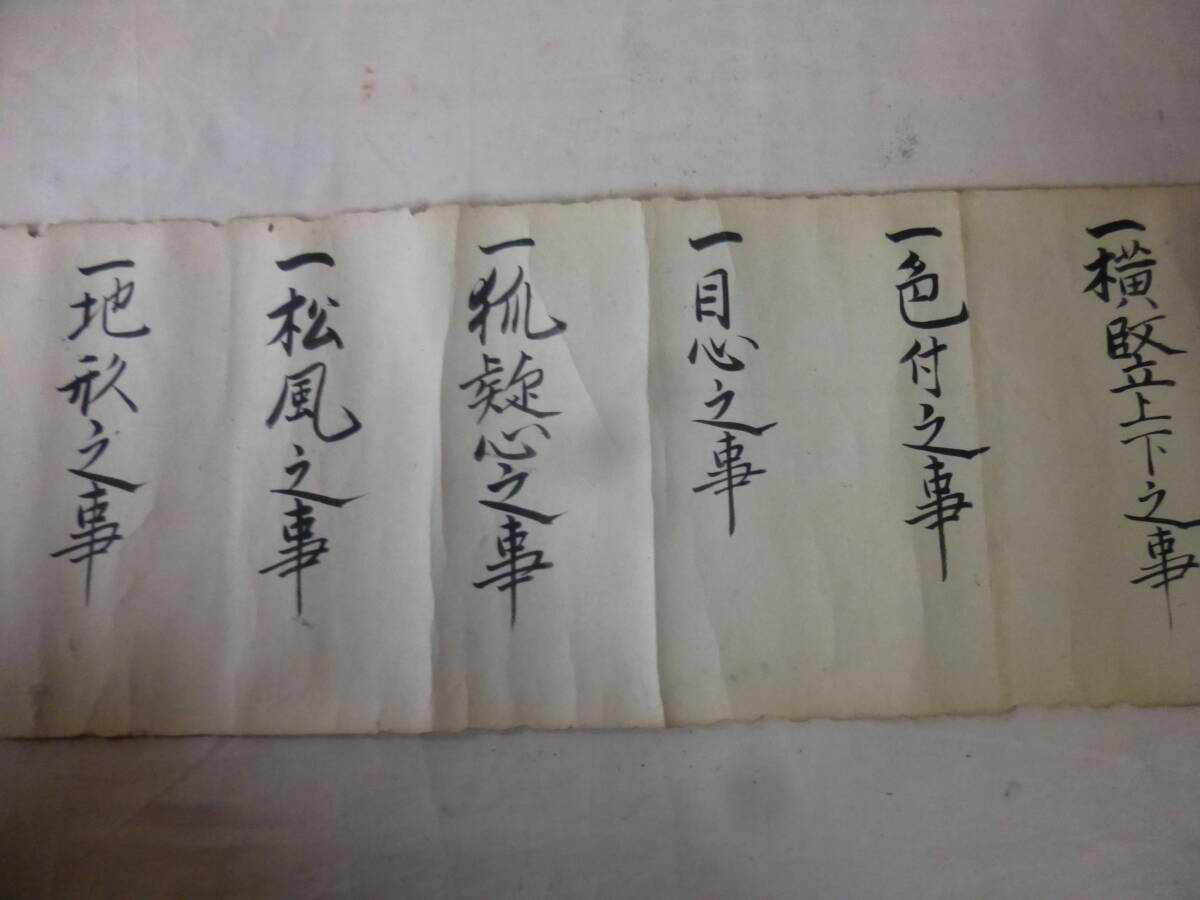 一横竪上下之事
一色付之事
一目心之事
一狐疑心之事
一松風之事
一地形之事